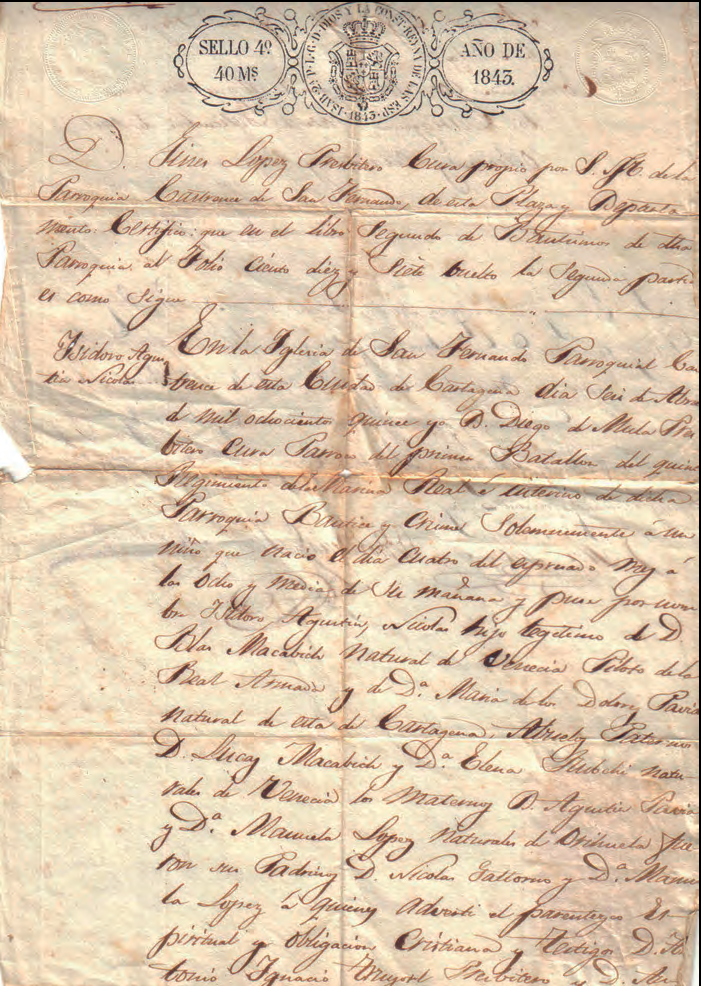 SELLO 4º
40 Mˢ
ISAB. 2ª P. L. G. D. DIOS Y LA CONST. REYNA DE LAS ESP.
1843
AÑO DE
1843.
D. Gines Lopez Presbitero Cura propio por S. M. de la
Parroquia Castrence de San Fernando, de esta Plaza y Departa
mento: Certifico: que en el libro Segundo de Bautismos de dha
Parroquia, al Folio ciento diez y Siete buelto la Segunda partida
es como Sigue
Isidoro Agus
tin Nicolas
En la Iglesia de San Fernando Parroquial Cas
trence de esta Ciudad de Cartagena dia Seis de Abril
de mil ochocientos quince yo D. Diego de Mula Pres
bitero Cura Parroco del primer Batallon del quinto
Regimiento de la Marina Real é interino de dicha
Parroquia Bautice y Crisme Solemnemente á un
niño que nacio el dia cuatro del espresado mes á
las Ocho y media de su mañana y puse por nom
bre Isidoro, Agustin, Nicolas hijo legitimo de D.
Blas Macabich natural de Venecia Piloto de la
Real Armada y de D.ª Maria de los Dolores Pavia
natural de esta de Cartagena, Abuelos Paternos
D. Lucas Macabich y D.ª Elena natu
rales de Venecia los Maternos D. Agustin Pavia
y D.ª Manuela Lopez naturales de Orihuela fue
ron sus Padrinos D. Nicolas Gattorno y D.ª Manue
la Lopez á quienes adverti el parentezco Es
piritual y obligacion Cristiana y Testigos D. An
tonio Ignacio Presbitero y D.